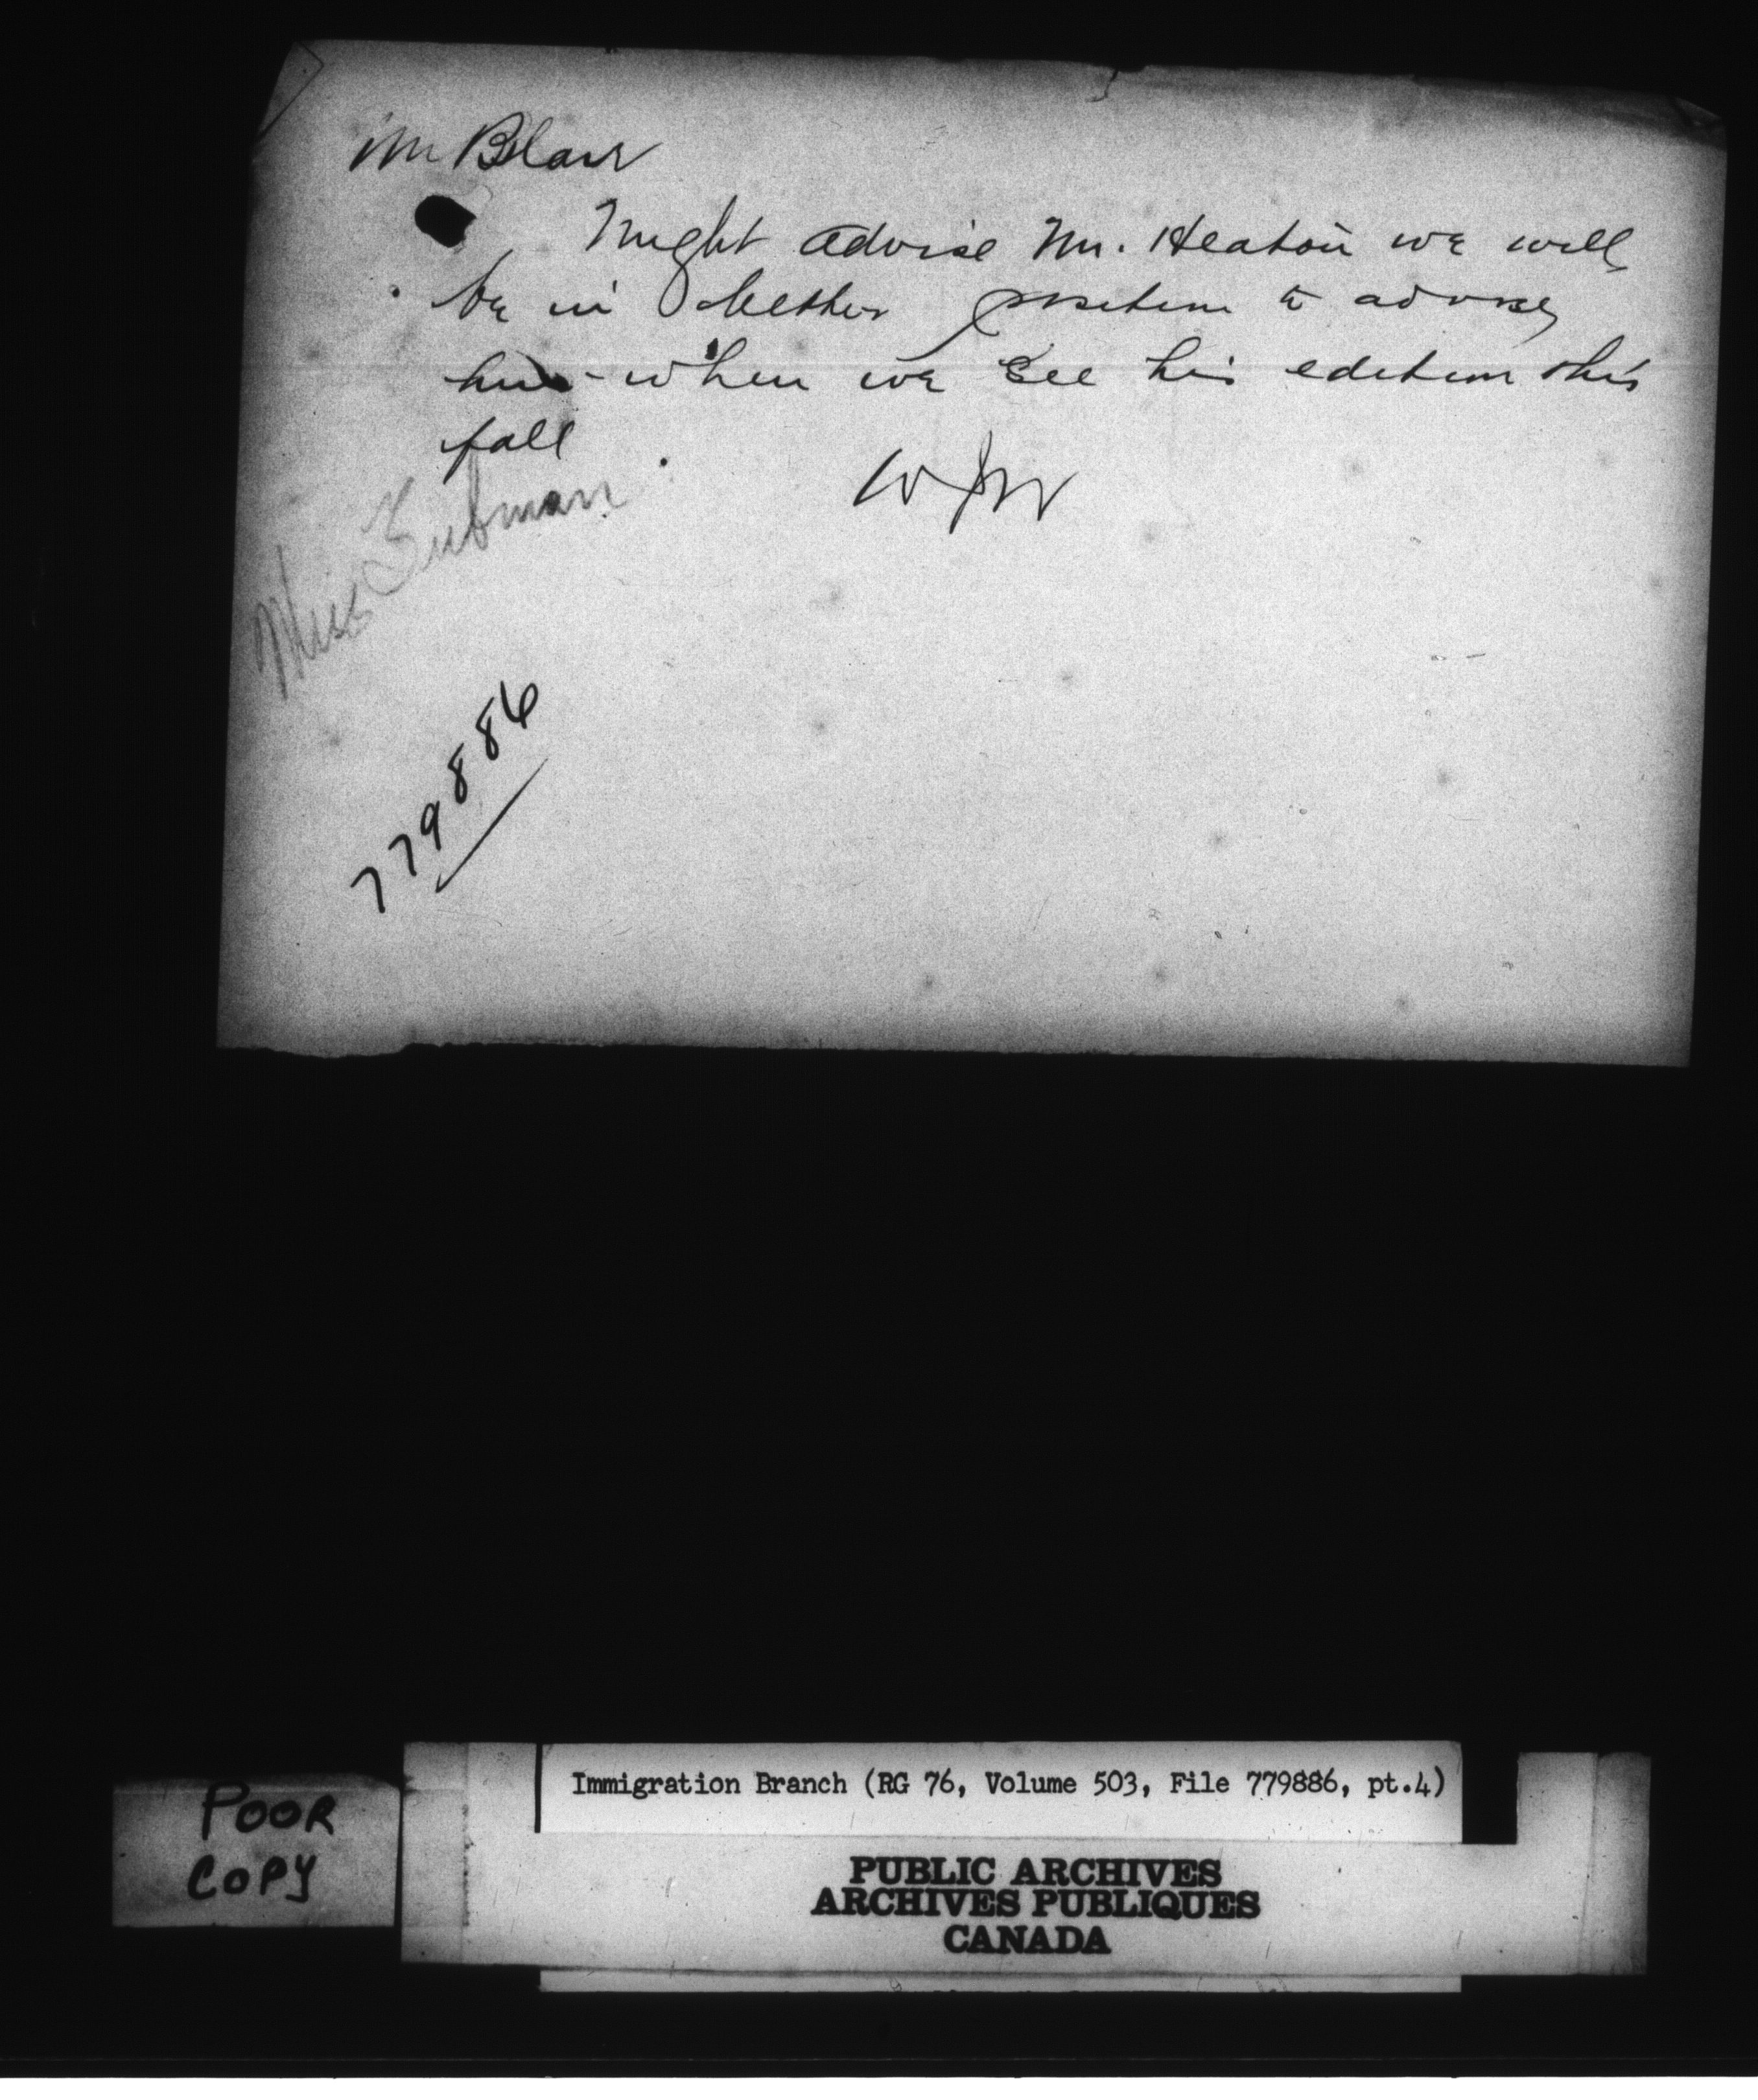 Mr Blair
Might advise Mr. Heaton we will
be in better position to advise
him when we see his edition this
fall
Miss
779886
POOR
COPY
Immigration Branch (RG 76, Volume 503, File 779886, pt.4)
PUBLIC ARCHIVES
ARCHIVES PUBLIQUES
CANADA